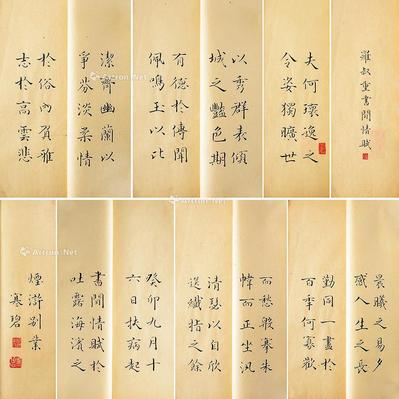 羅叔重書閒情賦
夫何瓌逸之
令姿獨曠世
以秀群表傾
城之豔色期
有德於傳聞
佩鳴玉以比
潔齊幽蘭以
爭芬淡柔情
於俗內負雅
志於高雲悲
晨曦之易夕
感人生之長
勤同一盡於
百年何寡歡
而愁殷褰朱
幃而正坐汎
清瑟以自欣
送纖指之餘
癸卯九月十
六日扶病起
書閒情賦於
吐露海濱之
煙滸別業
寒碧